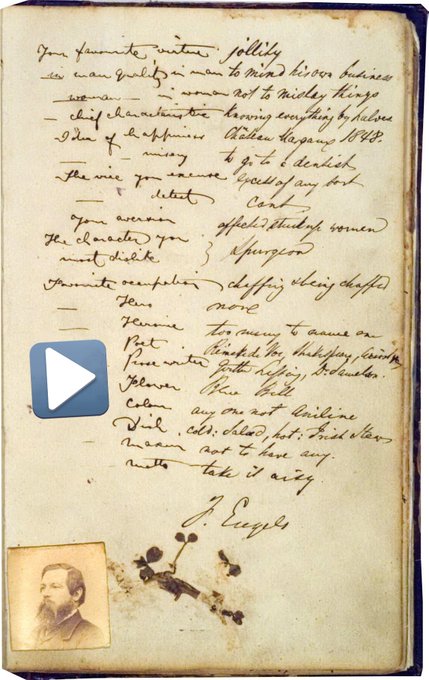 Your favourite virtue jollity
quality in man to mind his own business
— woman not to mislay things
— chief characteristic Knowing everything by halves
Idea of happiness Château Margaux 1848.
— — misery to go to a dentist
The vice you excuse excess of any sort
— detest Cant
Your aversion affected stuck up women
The character you } Spurgeon
most dislike
Favourite occupation chaffing & being chaffed
— Hero none
— Heroine too many to name one
Poet Reineke de Vos, Shakespeare, Ariosto
Prose writer Goethe, Lessing, Dr Samelson
Flower Blue Bell
Colour any one not Aniline
Dish cold: Salad, hot: Irish Stew
Maxim not to have any.
Motto take it aisy.
F. Engels